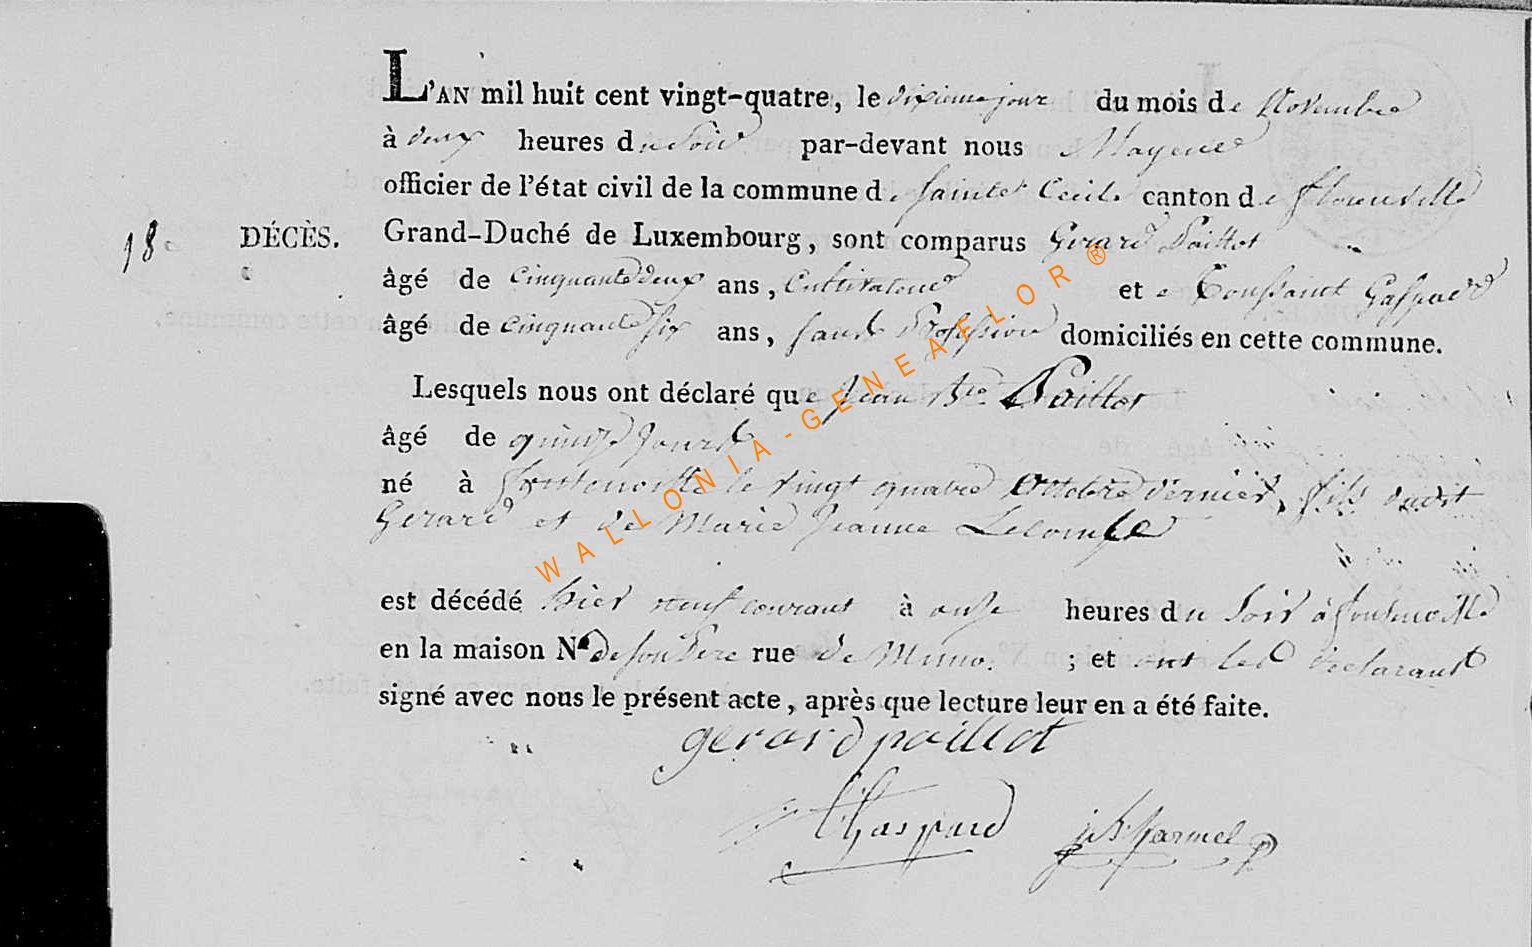 L'AN mil huit cent vingt-quatre, le dixieme jour du mois de Novembre
à deux heures du Soir par-devant nous Mayeur
officier de l'état civil de la commune de Sainte Cecile canton de florenville
18 DÉCÈS. Grand-Duché de Luxembourg, sont comparus Gerard Paillot
âgé de cinquante deux ans, Cultivateur et Toussaint Gaspard
âgé de cinquante six ans, sans Profession domiciliés en cette commune.
Lesquels nous ont déclaré que Jean Bte Paillot
âgé de quinze jours
né à fontenoille le vingt quatre Octobre dernier, fils dudit
Gerard et de Marie Jeanne Lecomte
est décédé hier neuf courant à onze heures du Soir à fontenoille
en la maison No de son Pere rue de Muno. ; et ont les declarants
signé avec nous le présent acte, après que lecture leur en a été faite.
gerard paillot
Gaspard
WALLONIA-GENEAFLOR®